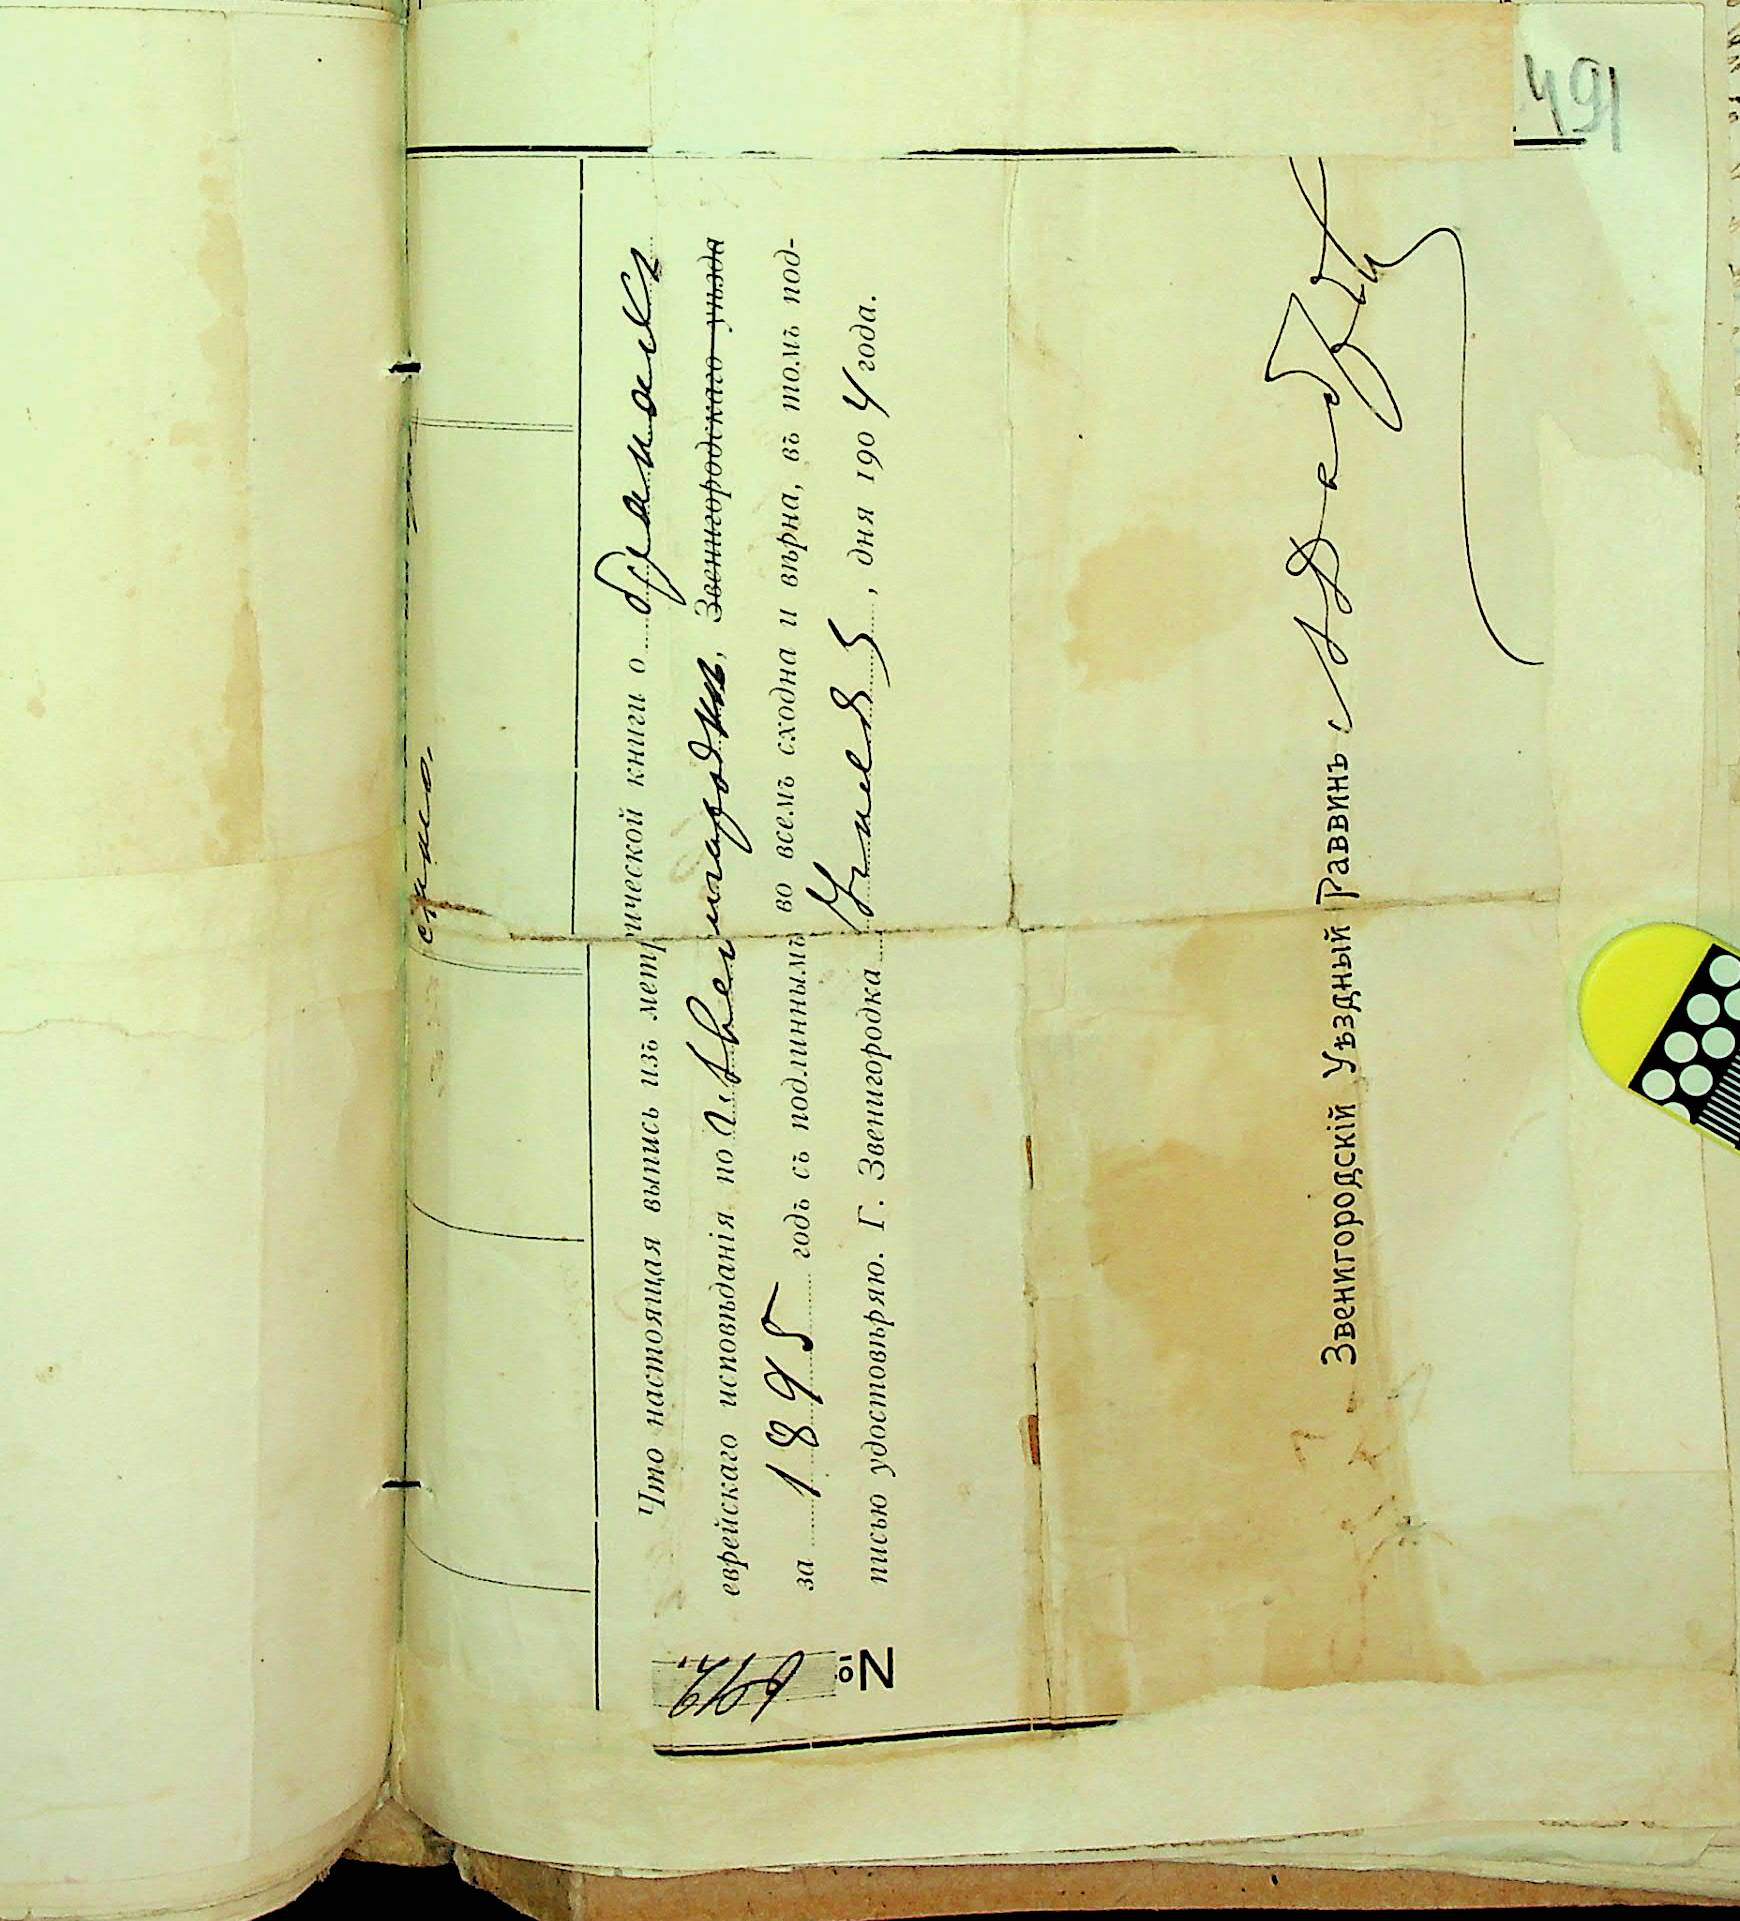 49
скою.
Что настоящая выпись изъ метрической книги о бракахъ
еврейскаго исповѣданія по г. Звенигородкѣ, Звенигородскаго уѣзда
за 1895 годъ съ подлиннымъ во всемъ сходна и вѣрна, въ томъ под-
писью удостовѣряю. Г. Звенигородка, дня 1904 года.
№
Звенигородскій Уѣздный Раввинъ